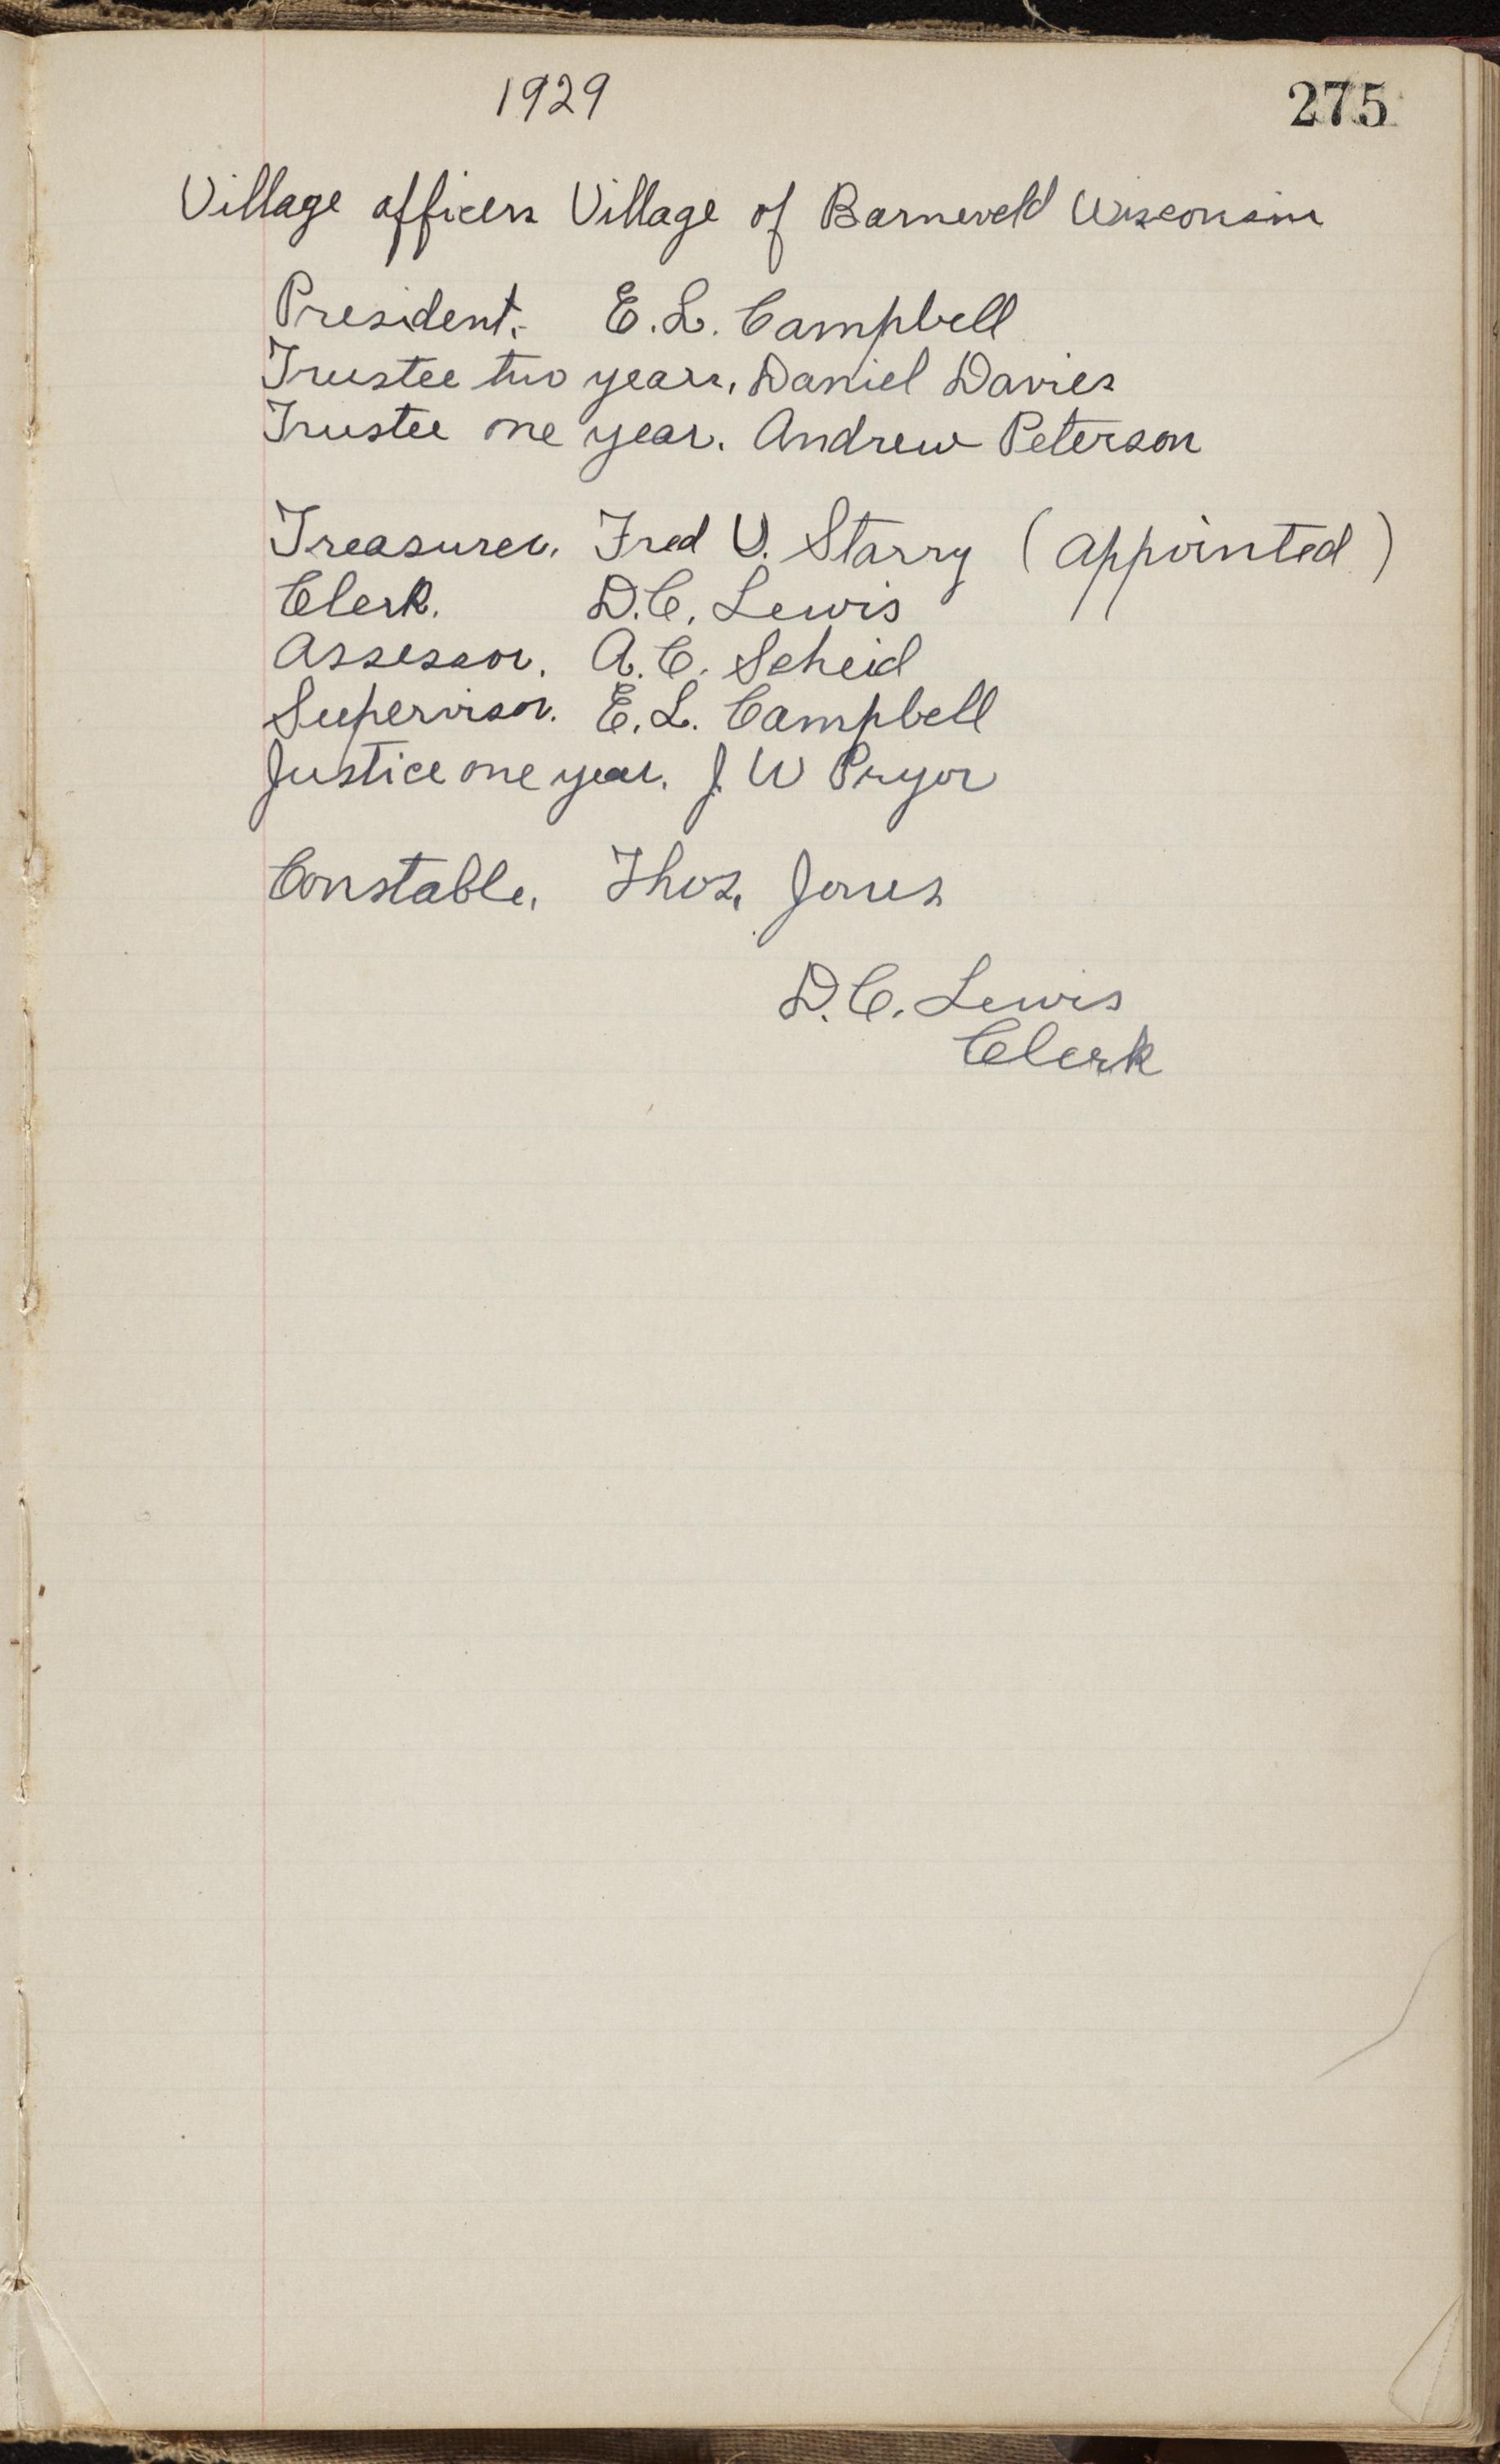 1929
275
Village officers Village of Barneveld Wisconsin
President. E. L. Campbell
Trustee two years, Daniel Davies
Trustee one year. Andrew Peterson
Treasurer. Fred V. Starry (appointed)
Clerk. D.C. Lewis
Assessor. A. C. Scheid
Supervisor. E. L. Campbell
Justice one year. J. W Pryor
Constable. Thos. Jones
D. C. Lewis
Clerk